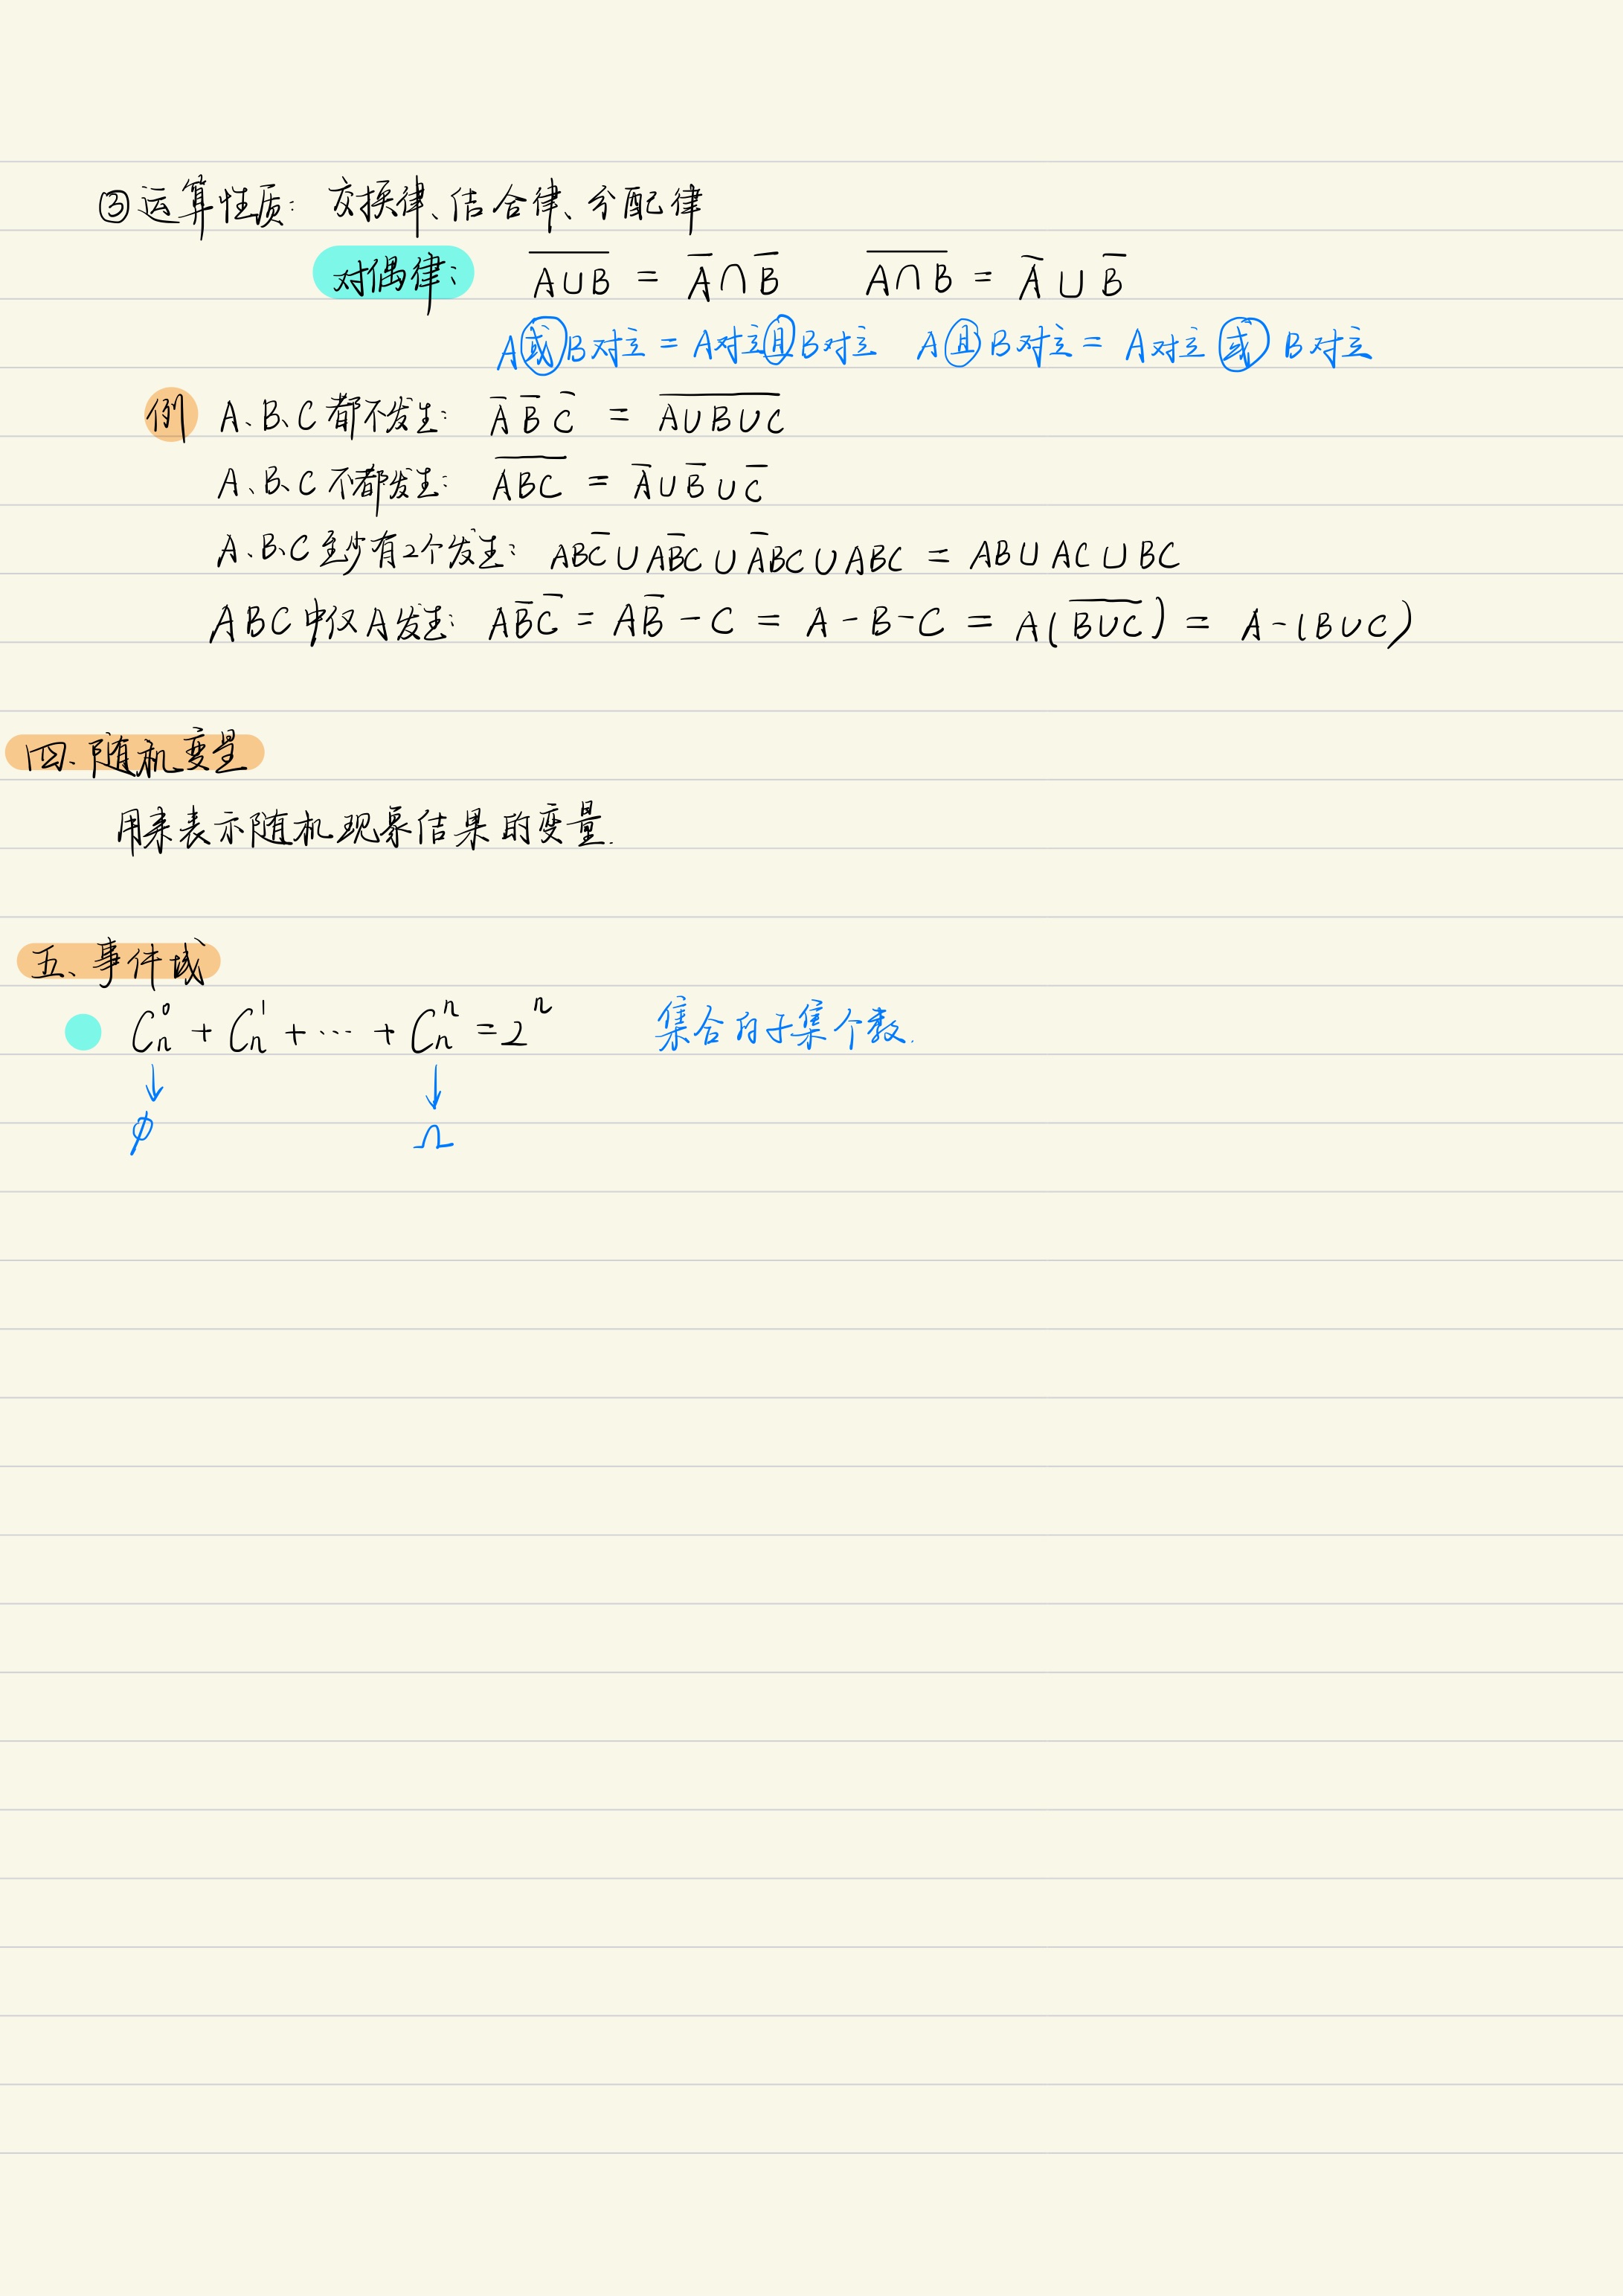 ③运算性质: 交换律、结合律、分配律
对偶律: $\overline{A∪B} = \overline{A}∩\overline{B}$  $\overline{A∩B} = \overline{A}∪\overline{B}$
A或B对立 = A对立且B对立  A且B对立 = A对立或B对立
例 A、B、C都不发生: $\overline{A}\,\overline{B}\,\overline{C} = \overline{A∪B∪C}$
A、B、C不都发生: $\overline{ABC} = \overline{A}∪\overline{B}∪\overline{C}$
A、B、C至少有2个发生: $AB\overline{C}∪A\overline{B}C∪\overline{A}BC∪ABC = AB∪AC∪BC$
ABC中仅A发生: $A\overline{B}\,\overline{C} = A\overline{B}-C = A-B-C = A(\overline{B∪C}) = A-(B∪C)$
四、随机变量
用来表示随机现象结果的变量.
五、事件域
$C_n^0 + C_n^1 + \cdots + C_n^n = 2^n$  集合的子集个数.
↓ ↓
∅ Ω